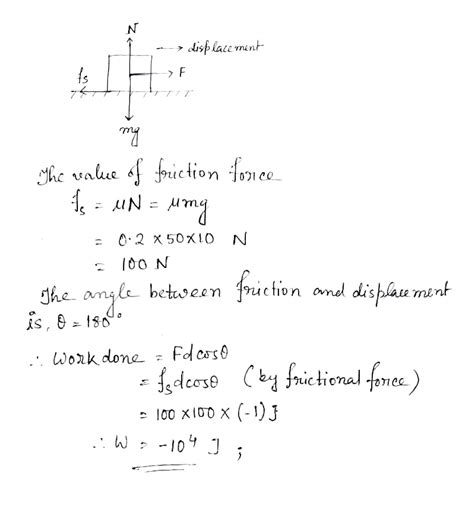 N
displacement
fs
F
mg
The value of friction force
fs = μN = μmg
= 0.2 x 50x10 N
= 100 N
The angle between friction and displacement
is, θ = 180°
∴ Work done = Fdcosθ
= fsdcosθ (by frictional force)
= 100 x100 x (-1) J
∴ W = -10⁴ J ;